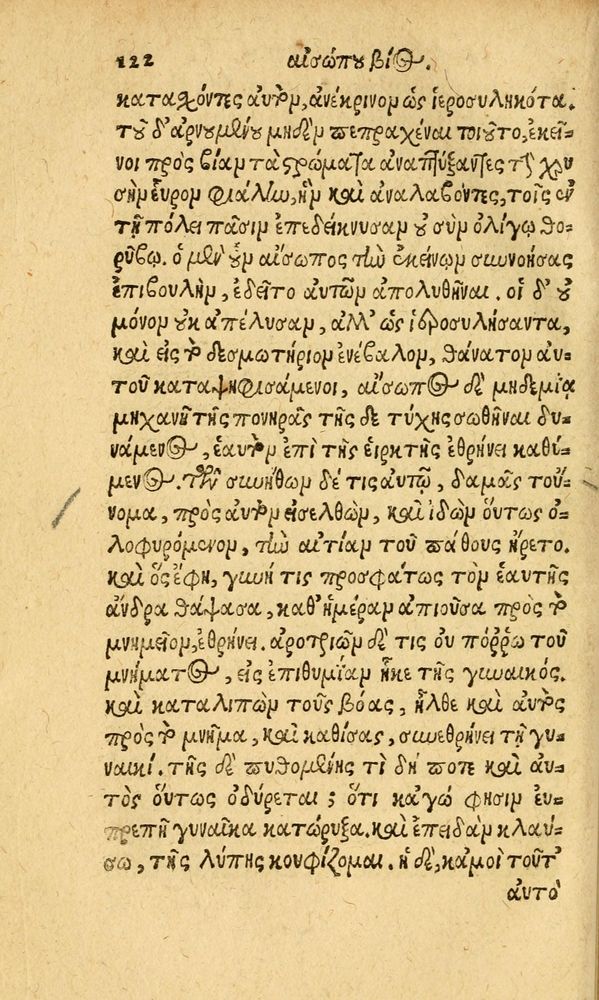 122 αἰσώπου βίος.
κατασχόντες αὐτὸν, ἀνέκρινον ὡς ἱεροσυληκότα.
τοῦ δ' ἀρνουμένου μηδὲν πεπραχέναι τοιοῦτο, ἐκεῖ-
νοι πρὸς βίαν τὰ στρώματα ἀναπτύξαντες τὴν χρυ
σῆν εὗρον φιάλην, ἣν καὶ ἀναλαβόντες, τοῖς ἐν
τῇ πόλει πᾶσιν ἐπεδείκνυσαν οὐ σὺν ὀλίγῳ θο-
ρύβῳ. ὁ μὲν οὖν αἴσωπος τὴν ἐκείνων συνοήσας
ἐπιβουλὴν, ἐδεῖτο αὐτῶν ἀπολυθῆναι. οἱ δ' οὐ
μόνον οὐκ ἀπέλυσαν, ἀλλ' ὡς ἱεροσυλήσαντα,
καὶ εἰς τὸ δεσμωτήριον ἐνέβαλον, θάνατον αὐ-
τοῦ καταψηφισάμενοι, αἴσωπος δὲ μηδεμίᾳ
μηχανῇ τῆς πονηρᾶς τῆς δε τύχης σωθῆναι δυ-
νάμενος, ἑαυτὸν ἐπὶ τῆς εἱρκτῆς ἐθρήνει καθή-
μενος. τῶν συνήθων δέ τις αὐτῷ, δαμᾶς τοὔ-
νομα, πρὸς αὐτὸν εἰσελθὼν, καὶ ἰδὼν οὕτως ὀ-
λοφυρόμενον, τὴν αἰτίαν τοῦ πάθους ἤρετο.
καὶ ὃς ἔφη, γυνή τις προσφάτως τὸν ἑαυτῆς
ἄνδρα θάψασα, καθ' ἡμέραν ἀπιοῦσα πρὸς τὸ
μνημεῖον, ἐθρήνει. ἀροτριῶν δέ τις οὐ πόῤῥω τοῦ
μνήματος, εἰς ἐπιθυμίαν ἧκε τῆς γυναικός.
καὶ καταλιπὼν τοὺς βόας, ἦλθε καὶ αὐτὸς
πρὸς τὸ μνῆμα, καὶ καθίσας, συνεθρήνει τῇ γυ-
ναικί. τῆς δὲ πυθομένης τί δή ποτε καὶ αὐ-
τὸς οὕτως ὀδύρεται; ὅτι κἀγώ φησιν εὐ-
πρεπῆ γυναῖκα κατώρυξα. καὶ ἐπειδὰν κλαύ-
σω, τῆς λύπης κουφίζομαι. ἡ δὲ, κἀμοὶ τοῦτ'
αὐτὸ